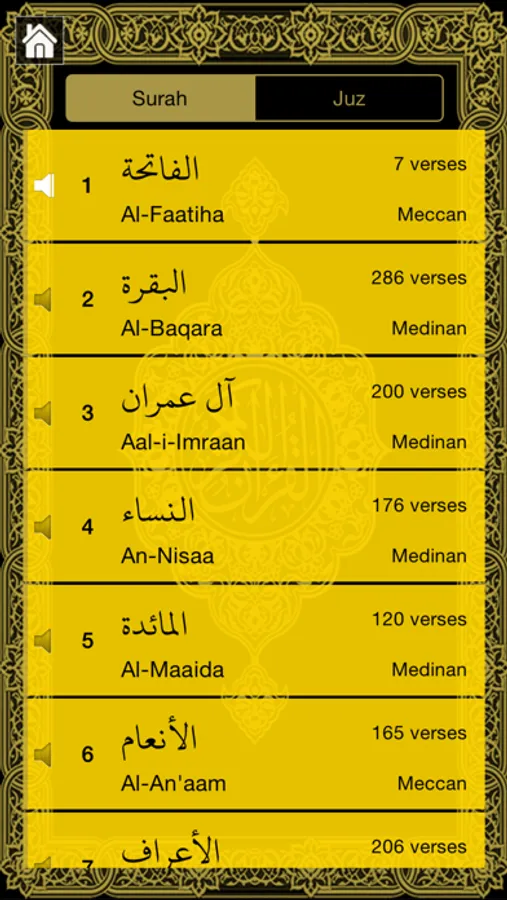 Surah
Juz
1
الفاتحة
Al-Faatiha
7 verses
Meccan
2
البقرة
Al-Baqara
286 verses
Medinan
3
آل عمران
Aal-i-Imraan
200 verses
Medinan
4
النساء
An-Nisaa
176 verses
Medinan
5
المائدة
Al-Maaida
120 verses
Medinan
6
الأنعام
Al-An'aam
165 verses
Meccan
7
الأعراف
206 verses